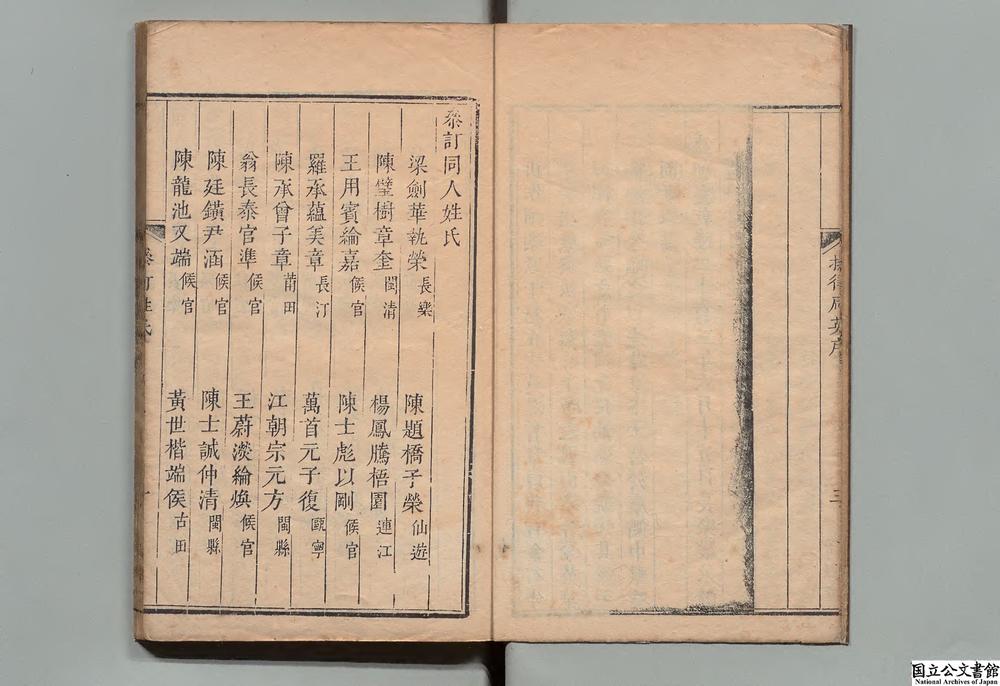 三
叅訂同人姓氏
梁劍華執榮 長樂 陳題橋子榮 仙遊
陳璧樹章奎 閩清 楊鳳騰梧園 連江
王用賓綸嘉 候官 陳士彪以剛 候官
羅承蘊美章 長汀 萬首元子復 甌寧
陳承曾子章 莆田 江朝宗元方 閩縣
翁長泰官準 候官 王蔚淡綸煥 候官
陳廷鐄尹涵 候官 陳士誠仲清 閩縣
陳龍池又端 候官 黃世楷端侯 古田
叅訂姓氏
国立公文書館
National Archives of Japan